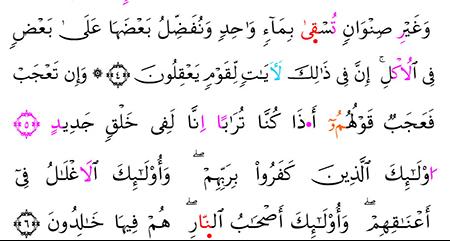 وَغَيْرِ صِنْوَانٍ تُسْقىٰ بِمَآءٍ وَاحِدٍ وَنُفَضِّلُ بَعْضَهَا عَلَىٰ بَعْضٍ
فِى الُاكْلِۚ إِنَّ فِى ذَٰلِكَ لَأَيَٰتٍ لِّقَوْمٍ يَعْقِلُونَ ﴿٤﴾ ۞ وَإِن تَعْجَبْ
فَعَجَبٌ قَوْلُهُمُۥٓ أَ•ذَا كُنَّا تُرَٰبًا اِنَّا لَفِى خَلْقٍ جَدِيدٍ ﴿٥﴾
اوْلَٰٓئِكَ الَّذِينَ كَفَرُواْ بِرَبِّهِمْ ۖ وَأُوْلَٰٓئِكَ الَاغْلَٰلُ فِىٓ
أَعْنَاقِهِمْ ۖ وَأُوْلَٰٓئِكَ أَصْحَٰبُ النّ۪ارِ ۖ هُمْ فِيهَا خَٰلِدُونَ ﴿٦﴾